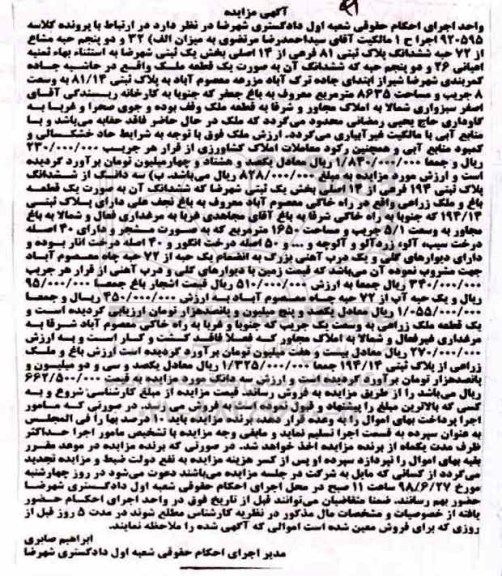 آگهی مزایده
واحد اجرای احکام حقوقی شعبه اول دادگستری شهرضا در نظر دارد در ارتباط با پرونده کلاسه
۹۲۰۵۹۵ اجرا ح ۱ مالکیت آقای سیداحمدرضا مرتضوی به میزان الف) ۳۲ و دو پنجم حبه مشاع
از ۷۲ حبه ششدانگ پلاک ثبتی ۸۱ فرعی از ۱۴ اصلی بخش یک ثبتی شهرضا به استثناء بهاء ثمنیه
اعیانی ۲۶ و دو پنجم حبه که ششدانگ آن به صورت یک قطعه ملک واقع در حاشیه جاده
کمربندی شهرضا شیراز ابتدای جاده ترک آباد مزرعه معصوم آباد به پلاک ثبتی ۸۱/۱۴ به وسعت
۸ جریب و مساحت ۸۶۳۵ مترمربع معروف به باغ جعفر که جنوبا به کارخانه ریسندگی آقای
اصغر سبزواری شمالا به املاک مجاور و شرقا به قطعه ملک وقف بوده و جوی صحرا و غربا به
گاوداری حاج یحیی رمضانی محدود می‌گردد که ملک در حال حاضر فاقد حقابه می‌باشد و با
منابع آبی با مالکیت غیرآبیاری می‌گردد. ارزش ملک فوق با توجه به شرایط حاد خشکسالی و
کمبود منابع آبی و همچنین رکود معاملات املاک کشاورزی از قرار هر جریب ۲۳۰/۰۰۰/۰۰۰
ریال و جمعا ۱/۸۴۰/۰۰۰/۰۰۰ ریال معادل یکصد و هشتاد و چهارمیلیون تومان برآورد گردیده
است و ارزش مورد مزایده به مبلغ ۸۲۸/۰۰۰/۰۰۰ ریال می‌باشد. ب) سه دانگ از ششدانگ
پلاک ثبتی ۱۹۴ فرعی از ۱۴ اصلی بخش یک ثبتی شهرضا که ششدانگ آن به صورت یک قطعه
باغ و ملک زراعی واقع در راه خاکی معصوم آباد معروف به باغ نجف علی دارای پلاک ثبتی
۱۹۴/۱۴ که جنوبا به راه خاکی شرقا به باغ آقای مجاهدی غربا به مرغداری فعال و شمالا به باغ
مجاور به وسعت ۵/۱ جریب و مساحت ۱۶۵۰ مترمربع که به صورت مشجر و دارای ۴۰ اصله
درخت سیب، آلو، زردآلو و آلوچه و ... و ۵۰ اصله درخت انگور و ۴۰ اصله درخت انار بوده و
دارای دیوارهای گلی و یک درب آهنی بزرگ به انضمام یک حبه از ۷۲ حبه چاه معصوم آباد
جهت مشروب نموده آن می‌باشد که قیمت زمین با دیوارهای گلی و درب آهنی از قرار هر جریب
۳۴۰/۰۰۰/۰۰۰ ریال جمعا به ارزش ۵۱۰/۰۰۰/۰۰۰ ریال قیمت اشجار باغ جمعا ۹۵/۰۰۰/۰۰۰
ریال و یک حبه آب از ۷۲ حبه چاه معصوم آباد به ارزش ۴۵۰/۰۰۰/۰۰۰ ریال و جمعا
۱/۰۵۵/۰۰۰/۰۰۰ ریال معادل یکصد و پنج میلیون و پانصدهزار تومان ارزیابی گردیده است و
یک قطعه ملک زراعی به وسعت یک جریب که جنوبا و غربا به راه خاکی معصوم آباد شرقا به
مرغداری غیرفعال و شمالا به املاک مجاور که فعلا فاقد کشت و کار است و به ارزش
۲۷۰/۰۰۰/۰۰۰ ریال معادل بیست و هفت میلیون تومان برآورد گردیده است ارزش باغ و ملک
زراعی از پلاک ثبتی ۱۹۴/۱۴ جمعا ۱/۳۲۵/۰۰۰/۰۰۰ ریال معادل یکصد و سی و دو میلیون و
پانصدهزار تومان برآورد گردیده است و ارزش سه دانگ مورد مزایده به قیمت ۶۶۲/۵۰۰/۰۰۰
ریال می‌باشد را از طریق مزایده به فروش رساند. قیمت مزایده از مبلغ کارشناسی شروع و به
کسی که بالاترین مبلغ را پیشنهاد و قبول نموده است به فروش می رسد. در صورتی که مامور
اجرا پرداخت بهای اموال را به وعده قرار دهد برنده مزایده باید ۱۰ درصد بها را فی المجلس
به عنوان سپرده به قسمت اجرا تسلیم نماید و مابقی وجه مزایده با تشخیص مامور اجرا حداکثر
ظرف مدت یکماه از برنده مزایده اخذ خواهد شد. در صورتی که برنده مزایده در موعد مقرر
بقیه بهای اموال را نپردازد سپرده او پس از کسر هزینه مزایده به نفع دولت ضبط و مزایده تجدید
می‌گردد از کسانی که مایل به شرکت در جلسه مزایده می‌باشند دعوت می‌شود در روز چهارشنبه
مورخ ۹۸/۶/۲۷ ساعت ۱۱ صبح در محل اجرای احکام حقوقی شعبه اول دادگستری شهرضا
حضور بهم رسانند. ضمنا متقاضیان می‌توانند قبل از تاریخ فوق در واحد اجرای احکام حضور
یافته از خصوصیات و مشخصات مال مذکور در نظریه کارشناس مطلع شوند در مدت ۵ روز قبل از
روزی که برای فروش معین شده است اموالی که آگهی شده را ملاحظه نمایند.
ابراهیم صابری
مدیر اجرای احکام حقوقی شعبه اول دادگستری شهرضا